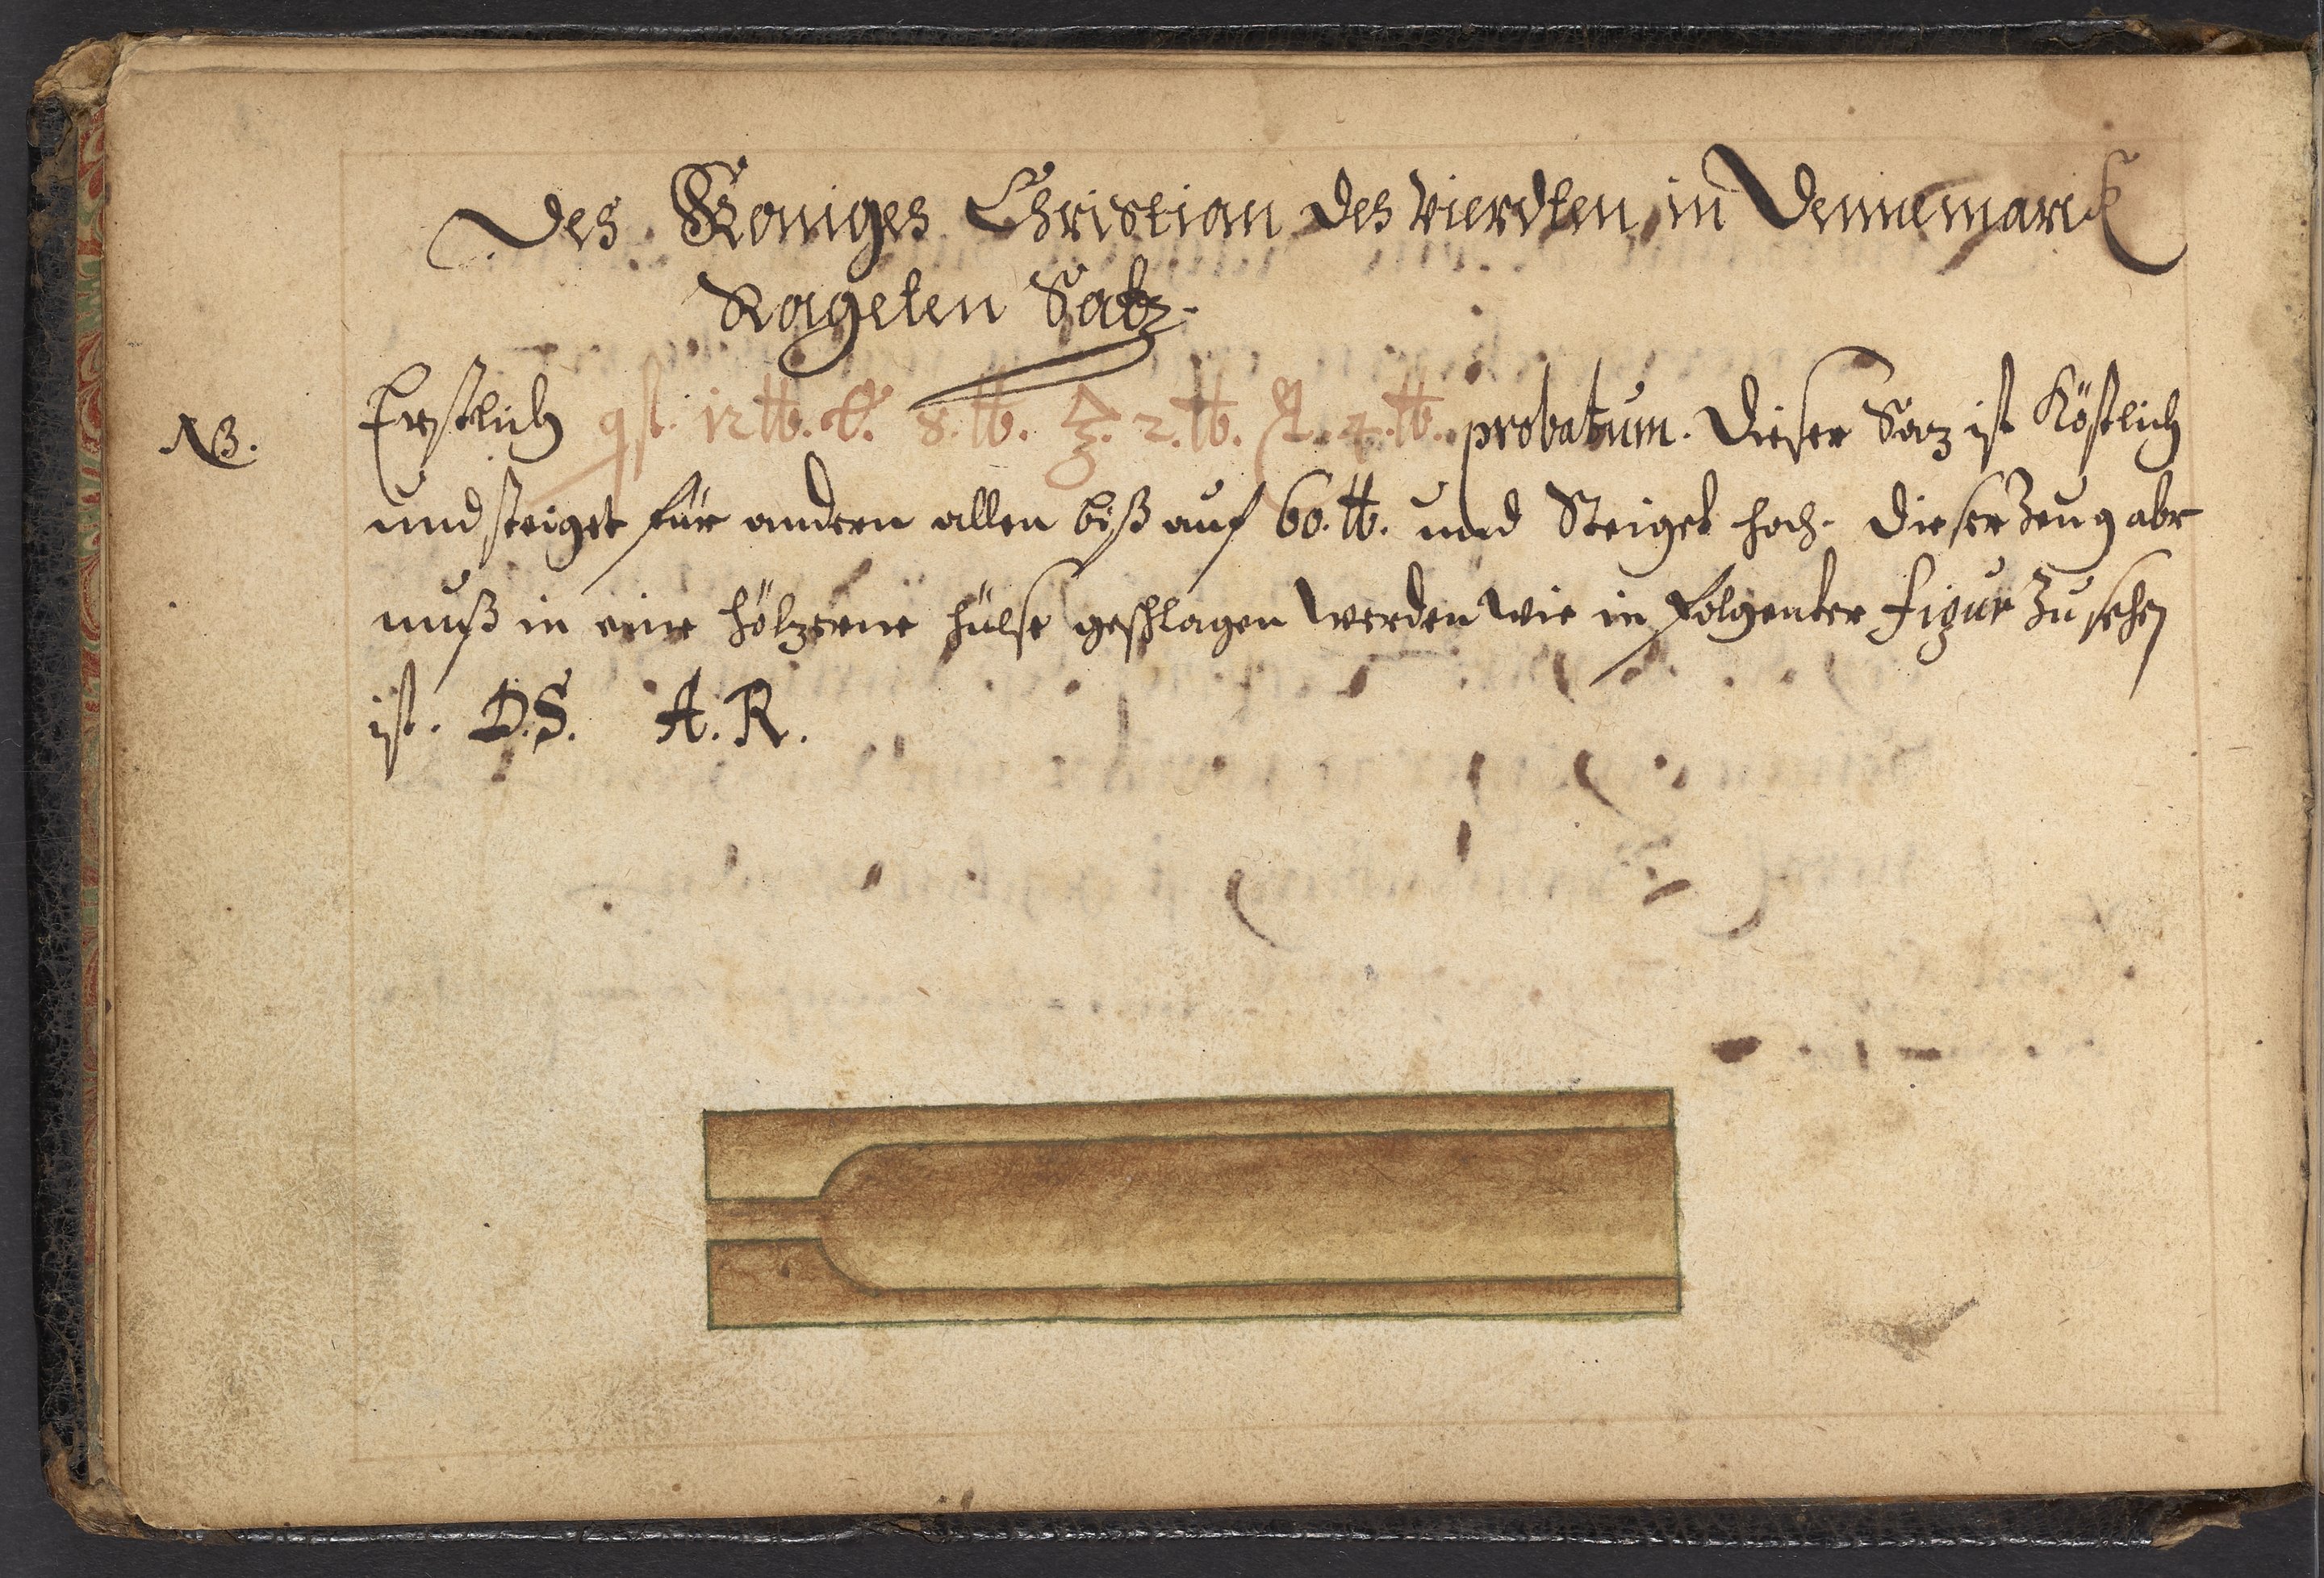 Des Königes Christian des Vierdten in Dennemarck
Rageten Satz.
NB. Erstlich 12 ℔. 8. ℔. 2. ℔. 4. ℔. probatum. Dieser Saz ist Köstlich
und steiget für andern allen biß auf 60. ℔. und Steiget hoch. Dieser Zeug abr
muß in eine höltzerne hülse geschlagen werden wie in folgenter figur Zu sehen
ist. D.S. A.R.